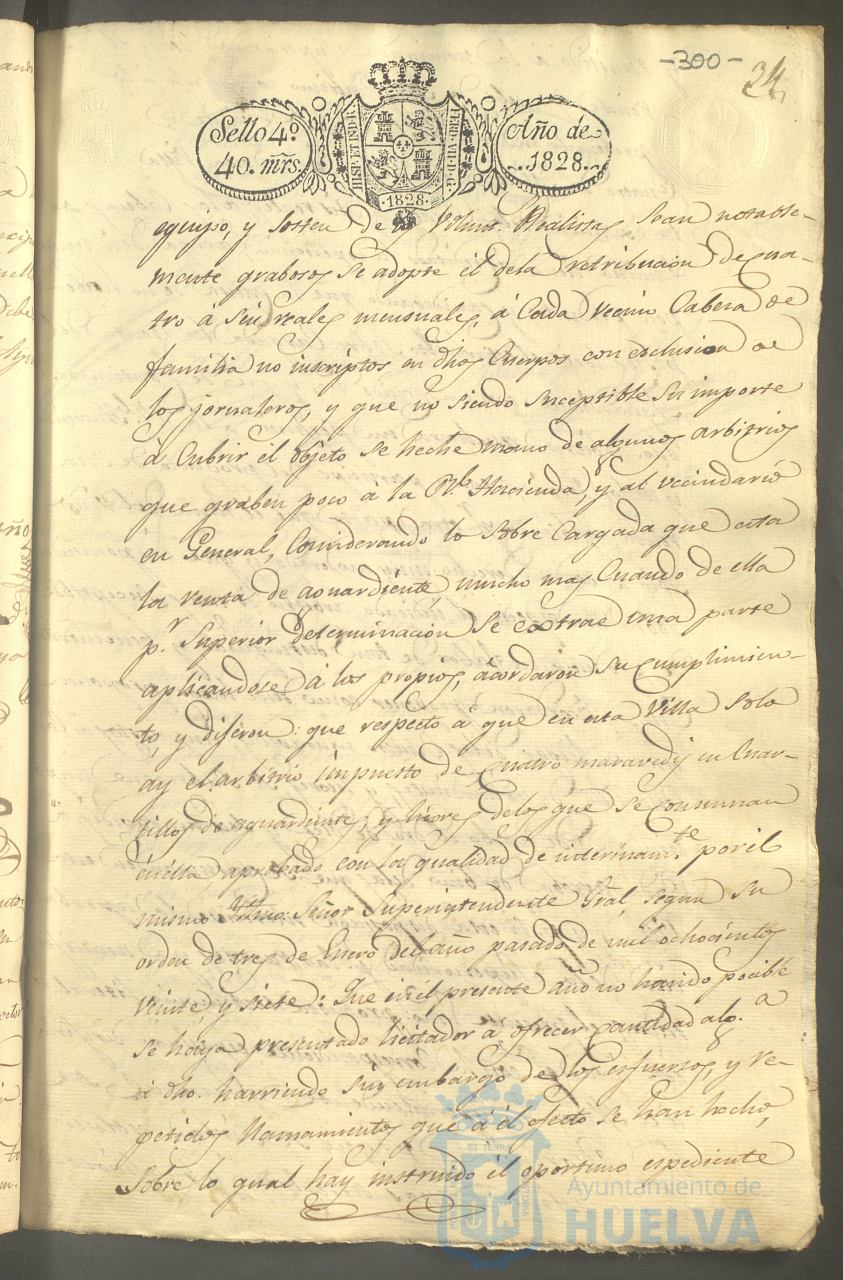 -300-
24
Sello 4º
40. mrs
HISP. ET IND. R.
1828
Año de
1828.
equipo, y sosten de los Volunt. Realistas sean notable-
mente grabosos se adopte el de la retribucion de cua-
tro á seis reales mensuales, á Cada vecino Cabeza de
familia no inscriptos en dhos Cuerpos con esclusion de
los jornaleros, y que no siendo suceptible su importe
á Cubrir el objeto se heche mano de algunos arbitrios
que graben poco á la Rl. Hacienda, y al vecindario
en General, Considerando lo sobre Cargada que esta
la renta de aguardiente, mucho mas Cuando de ella
pr. Superior determinacion se extrae una parte
aplicandose á los propios, acordaron su cumplimien-
to, y dijeron: que respecto á que en esta Villa solo
ay el arbitrio impuesto de Cuatro maravedis en Cuar-
tillos de aguardientes, y licores de los que se Consuman
en ella, aprobado con la qualidad de interinamte. por el
mismo Yltmo. Señor Superintendente Gral, segun su
orden de tres de Enero del año pasado de mil ochocientos
veinte, y siete: Que en el presente año no ha sido pocible
se haya presentado licitador á ofrecer cantidad alga.
á dho. harriendo sin embargo de los esfuersos, y re-
petidos llamamientos que á el efecto se han hecho,
Sobre lo qual hay instruido el oportuno espediente
Ayuntamiento de
HUELVA